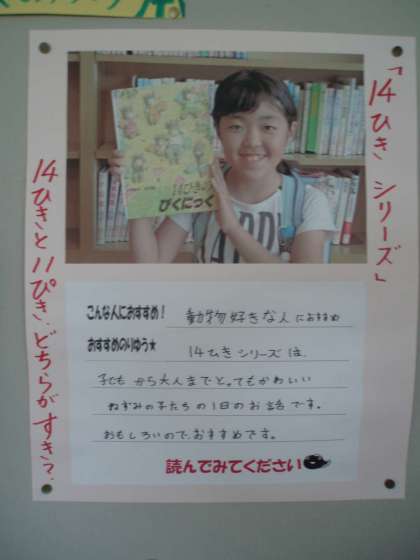 「14ひき シリーズ」
14ひきの
ぴくにっく
14ひきと11ぴき、どちらがすき？
こんな人におすすめ！ 動物好きな人におすすめ
おすすめのりゆう★ 14ひきシリーズは、
子ども から大人までとってもかわいい
ねずみの子たちの1日のお話です。
おもしろいので、おすすめです。
読んでみてください